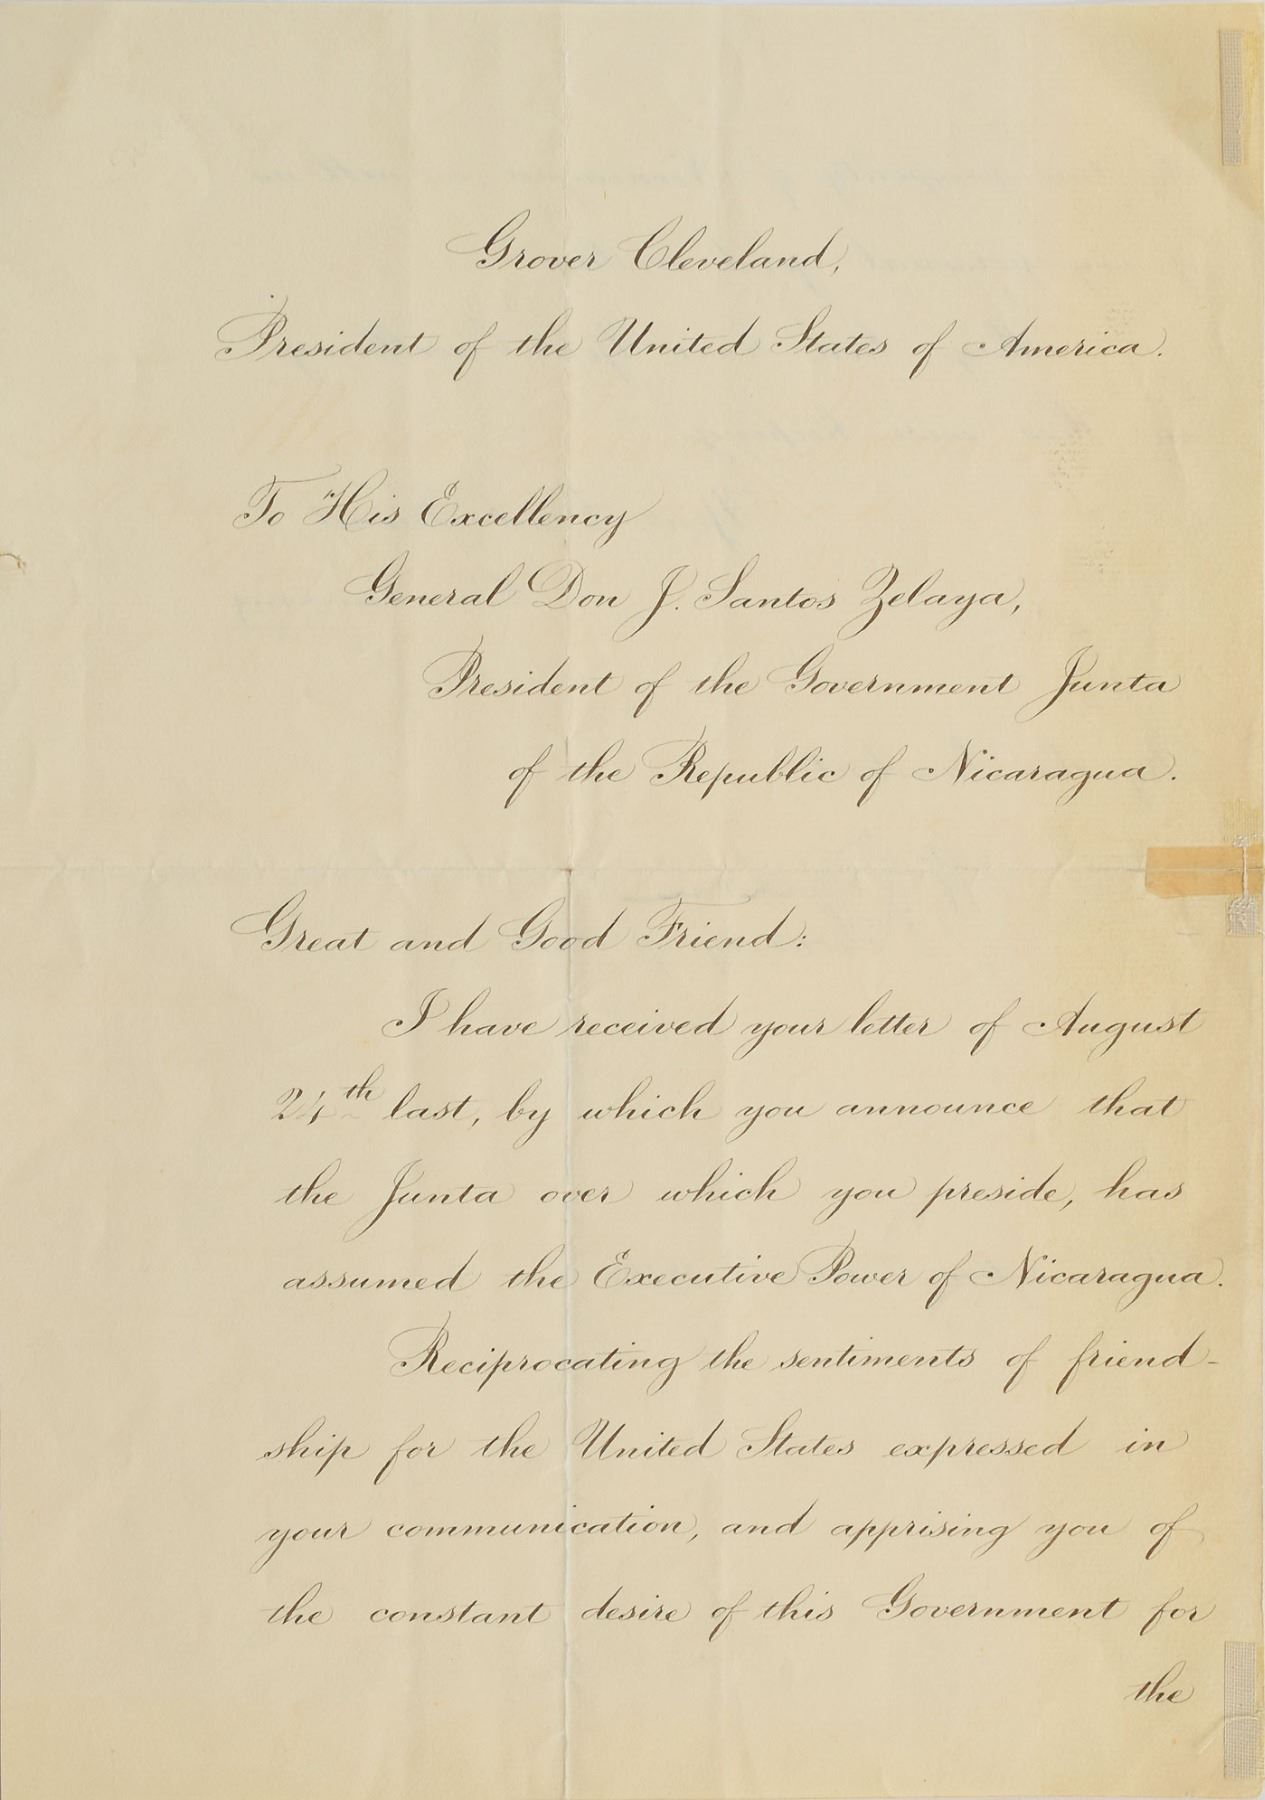 Grover Cleveland,
President of the United States of America.
To His Excellency
General Don J. Santos Zelaya,
President of the Government Junta
of the Republic of Nicaragua.
Great and Good Friend:
I have received your letter of August
24th last, by which you announce that
the Junta over which you preside, has
assumed the Executive Power of Nicaragua.
Reciprocating the sentiments of friend-
ship for the United States expressed in
your communication, and apprising you of
the constant desire of this Government for
the